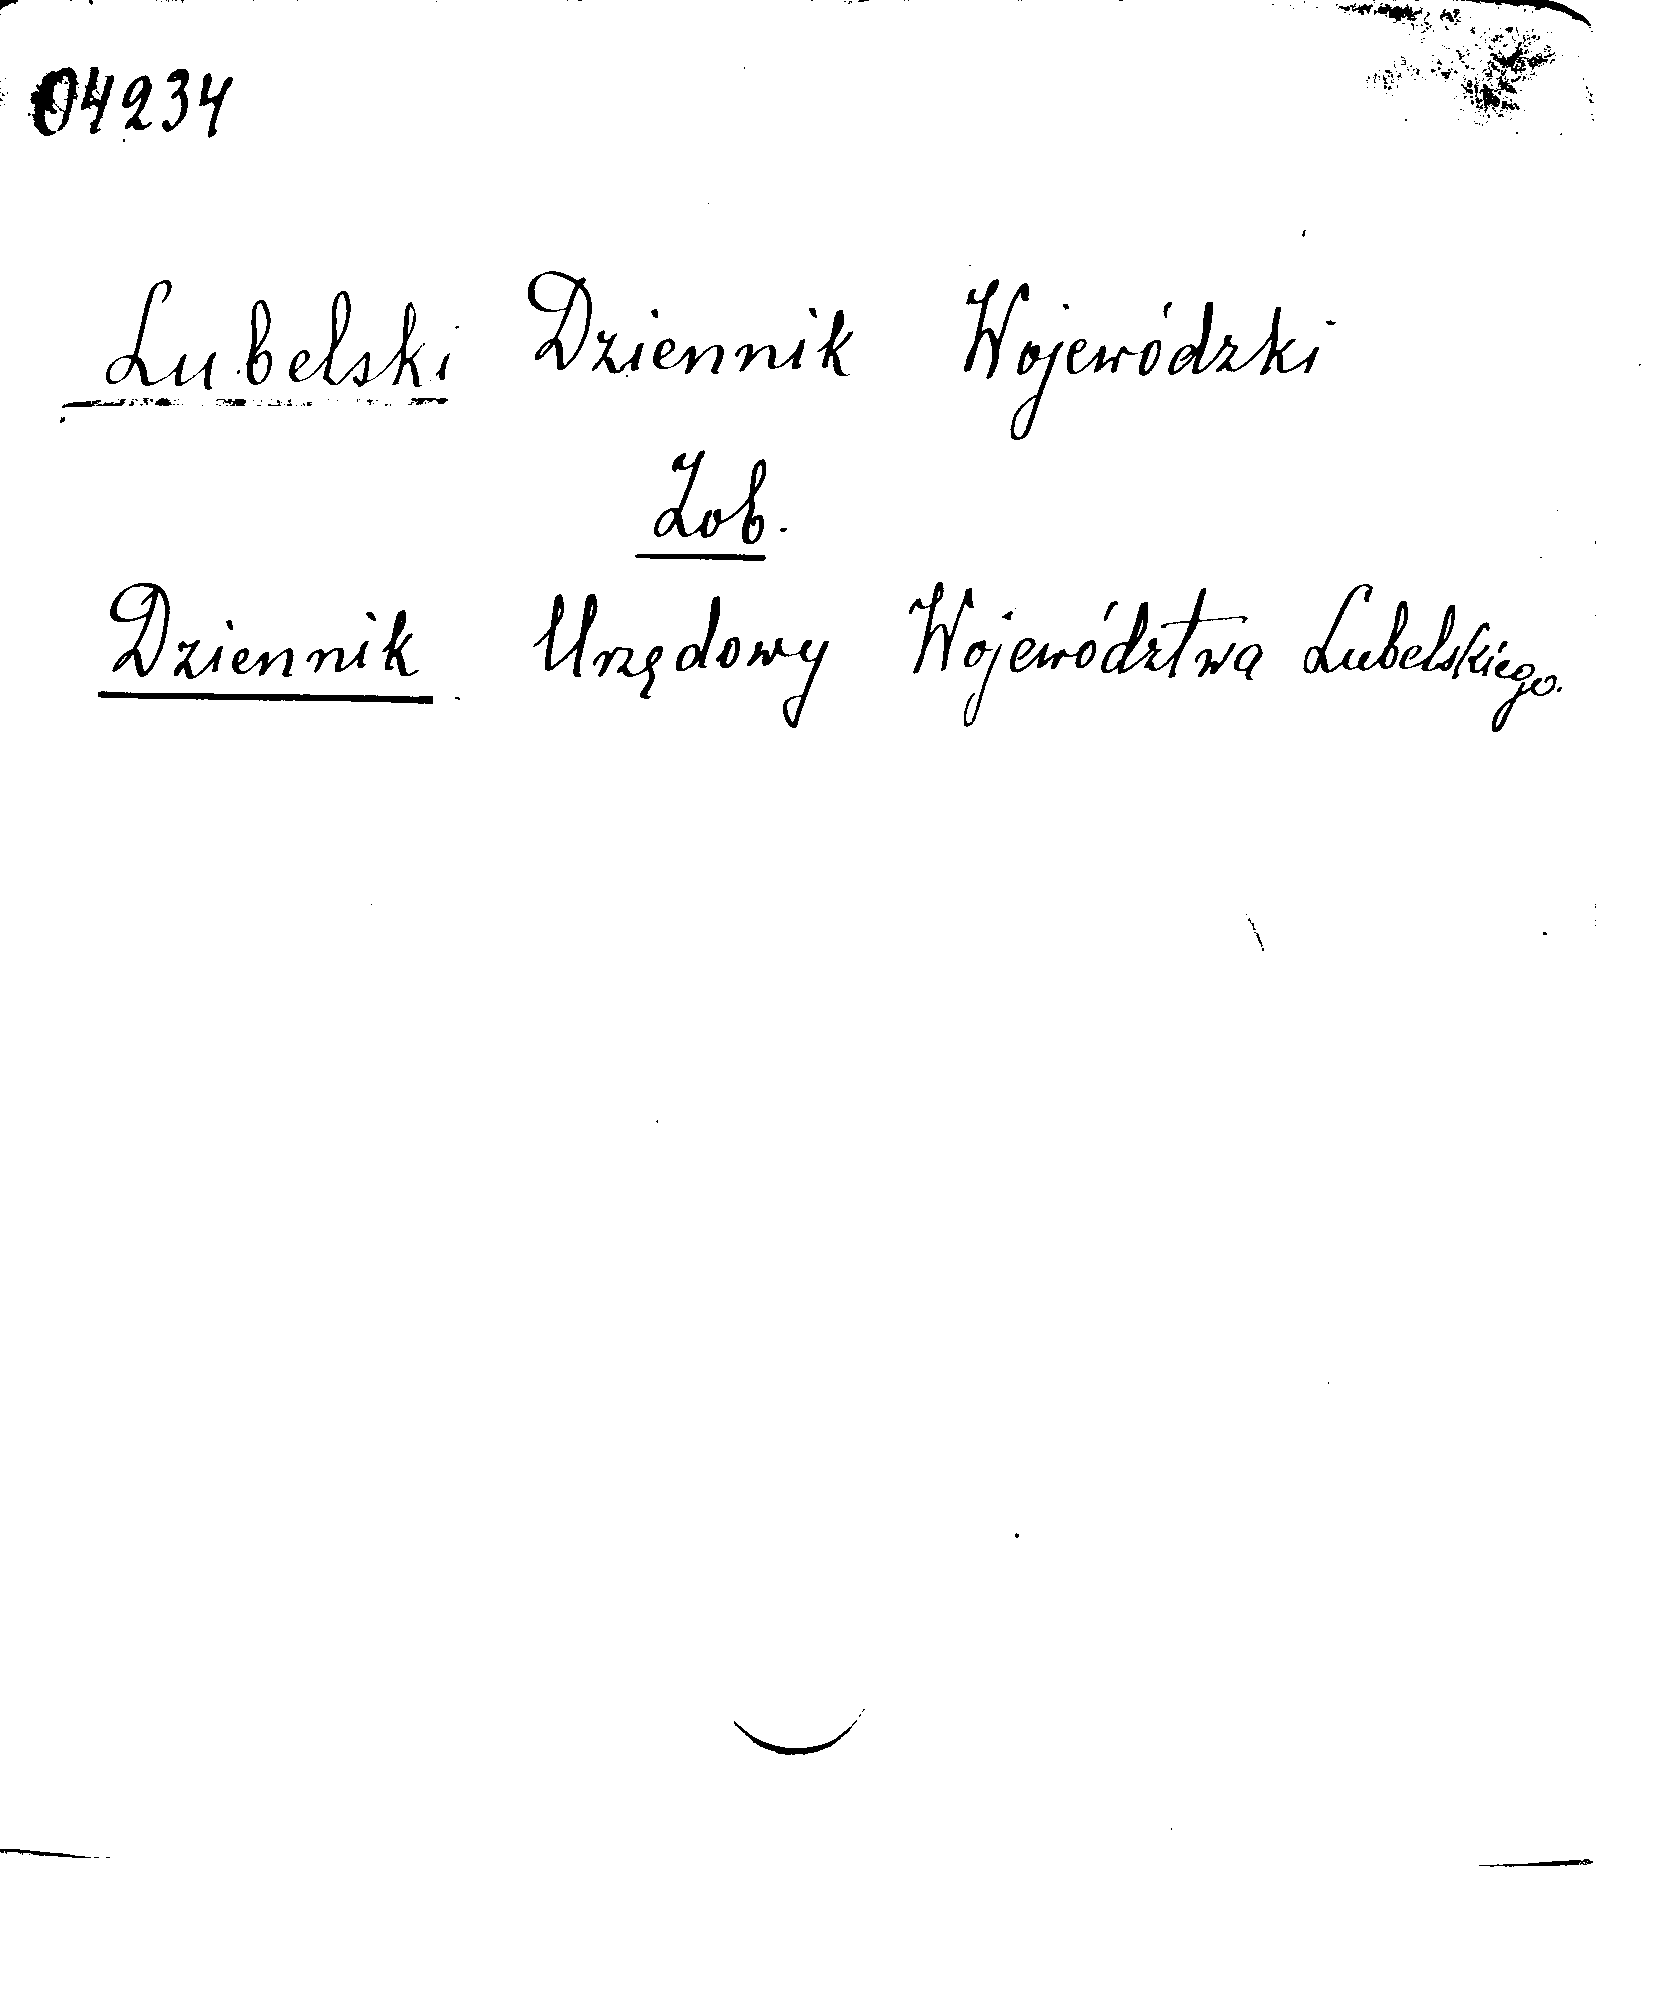 04234
Lubelski Dziennik Wojewódzki
Zob.
Dziennik Urzędowy Województwa Lubelskiego.